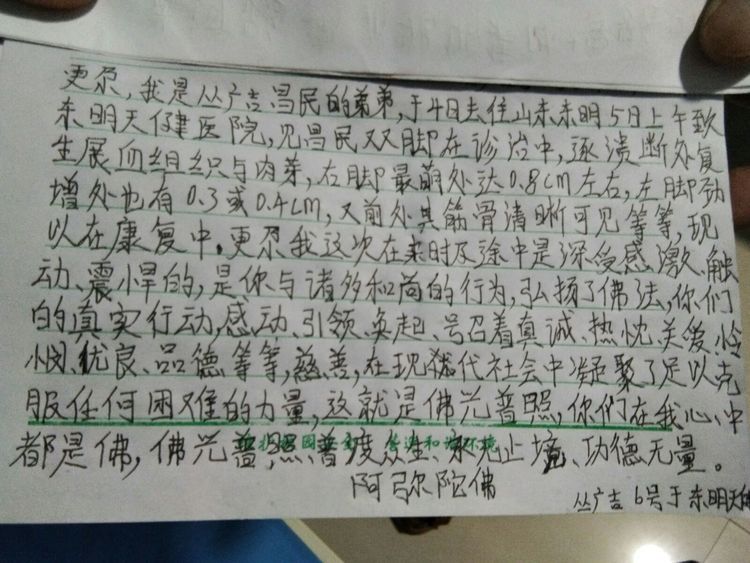 更尕,我是丛广吉昌民的弟弟,于4日去住山东东明5日上午致
东明天健医院,见昌民双脚在诊治中,逐溃断处复
生展血组组织与肉芽,右脚最前处达0.8cm左右,左脚劲
增处也有0.3或0.4cm,又前处其筋骨清晰可见等等,现
以在康复中。更尕我这次在来时及途中是深受感激、触
动、震悍的,是你与诸多和尚的行为,弘扬了佛法,你们
的真实行动,感动、引领、唤起、号召着真诚、热忱、关爱、怜
悯、优良、品德等等,慈善,在现代社会中凝聚了足以克
服任何困难的力量,这就是佛光普照,你们在我心中
都是佛,佛光普照、普渡众生、永无止境、功德无量。
阿弥陀佛
丛广吉 6号于东明天健